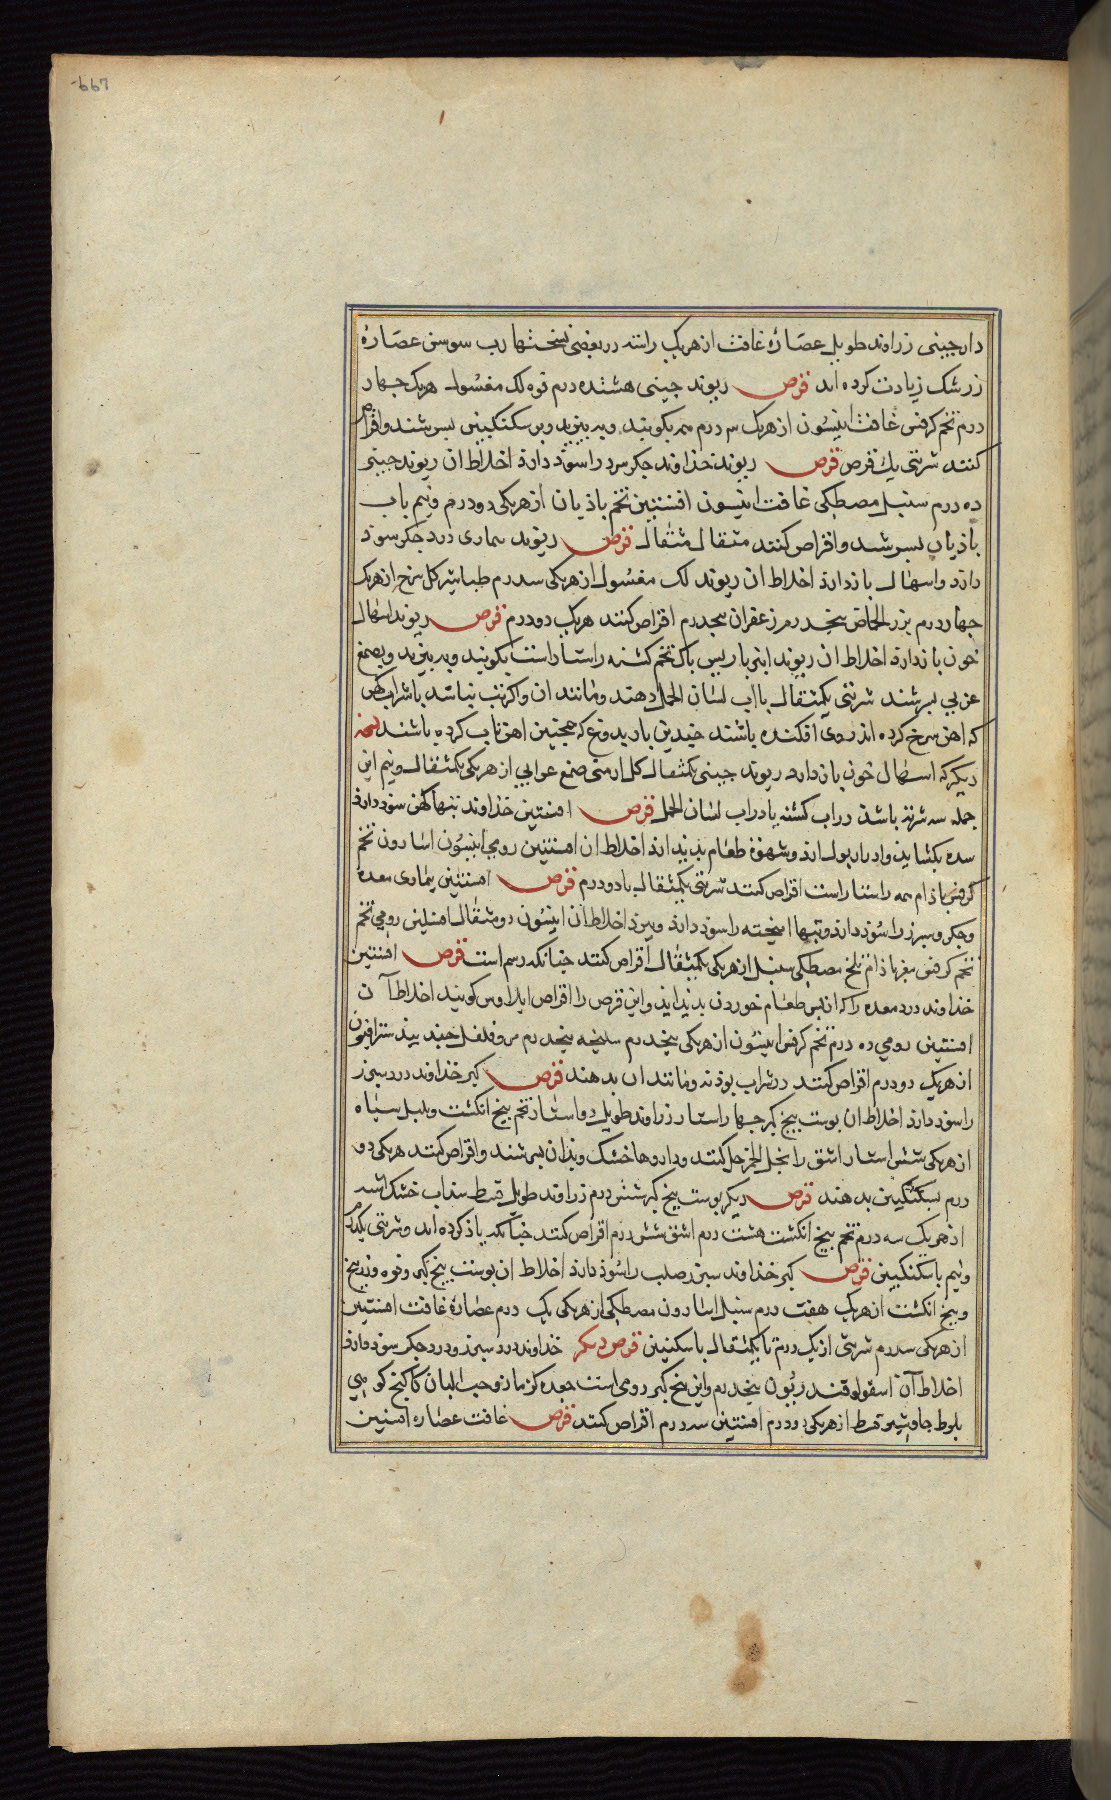 667
دارجینی زراوند طویل عصارۀ غافت از هریک راسته در بعضی نسختها رب سوسن عصارۀ
زرشک زیادت کرده اند قرص ریوند جینی هشتده درم فوه لک مغسول هریک جهار
درم تخم کرفس غافت انیسون از هریک سه درم همه بکوبند وبه بیزند وبر سکنکبین بسرشند واقراص
کنند شربتی یک قرص قرص ریوند خذاوند جکر سرد را سوذ دارد اخلاط ان ریوند جینی
ده درم سنبل مصطکی غافت انیسون افسنتین تخم باذیان از هریکی دو درم ونیم باب
باذیان بسرشند واقراص کنند مثقال مثقال قرص ریوند بیماری درد جکر سوذ
دارد واسهال باز دارد اخلاط ان ریوند لک مغسول از هریکی سه درم طباشیر کل سرخ از هریک
جهار درم بزر الحماض پنجدرم زعفران پنجدرم اقراص کنند هریک دو درم قرص ریوند اسهال
خون باز دارد اخلاط ان ریوند انبرباریس پاک تخم کشنه راستاراست بکوبند وبه بیزند وبصمغ
عربی بسرشند شربتی یکمثقال باب لسان الحمل دهند ومانند ان واکر تب نباشد باشراب کهن
که اهن سرخ کرده اندروی افکنده باشند جندین بار یدوغ که همجنین اهن تاب کرده باشند نسخه
دیکر که اسهال خون باز دارد ریوند جینی یکمثقال کل ارمنی صمغ عرابی از هریکی یکمثقال ونیم این
جمله سه شربته باشد در اب کشنه یا در اب لسان الحمل قرص افسنتین خذاوند تبهاء کهن سوذ دارد
سده بکشاید وادرار بول ارد وشهوة طعام بدید ارد اخلاط ان افسنتین رومی انیسون اسارون تخم
کرفس باذام همه راستاراست اقراص کنند شربتی یکمثقال یا دو درم قرص افسنتین بیماری معده
وجکر وسپرز را سوذ دارد وتبهاء امیخته را سوذ دارد وببرد اخلاط ان انیسون دو مثقال افسنتین رومی تخم
تخم کرفس مغز باذام تلخ مصطکی سنبل از هریکی یکمثقال اقراص کنند جنانکه رسم است قرص افسنتین
خذاوند درد معده را که از پس طعام خوردن بدید اید واین قرص را اقراص ایلاوس کویند اخلاط آن
افسنتین رومی ده درم تخم کرفس انیسون از هریکی پنجدرم سلیخه پنجدرم مر وفلفل جند بیدستر افیون
از هریک دو درم اقراص کنند در شراب بوذنه ومانند ان بدهند قرص کبر خذاوند درد سپرز
را سوذ دارد اخلاط ان بوست بیخ کبر جهار استار زراوند طویل دو استار تخم پنج انکشت وبلبل سیاه
از هریکی شش استار اشق را بخل الخمر حل کنند وداروهاء خشک وبذان بسرشند واقراص کنند هریکی دو
درم بسکنکبین بدهند قرص دیکر بوست بیخ کبر شش درم زراوند طویل قسط سذاب خشک اسه
از هریک سه درم تخم پنج انکشت هشت درم اشق شش درم اقراص کنند جنانکه یاذ کرده اند وشربتی یکدرم
ونیم باسکنکبین قرص کبر خذاوند سپرز صلب را سوذ دارد اخلاط ان بوست بیخ کبر وفوه وزرنیخ
وپنج انکشت از هریک هفت درم سنبل اسارون مصطکی از هریکی یک درم عصارۀ غافت افسنتین
از هریکی سه درم شربتی از یک درم تا یکمثقال باسکنبین قرص دیکر خذاوند درد سپرز ودرد جکر سوذ دارد
اخلاط آن اسقولوقندریون پنجدرم واین بیخ کبر رومی است جعده کزمازو حب البان کاکنج کومی
بلوط جاوشیر قسط از هریکی دو درم افسنتین سه درم اقراص کنند قرص غافت عصاره افسنتین